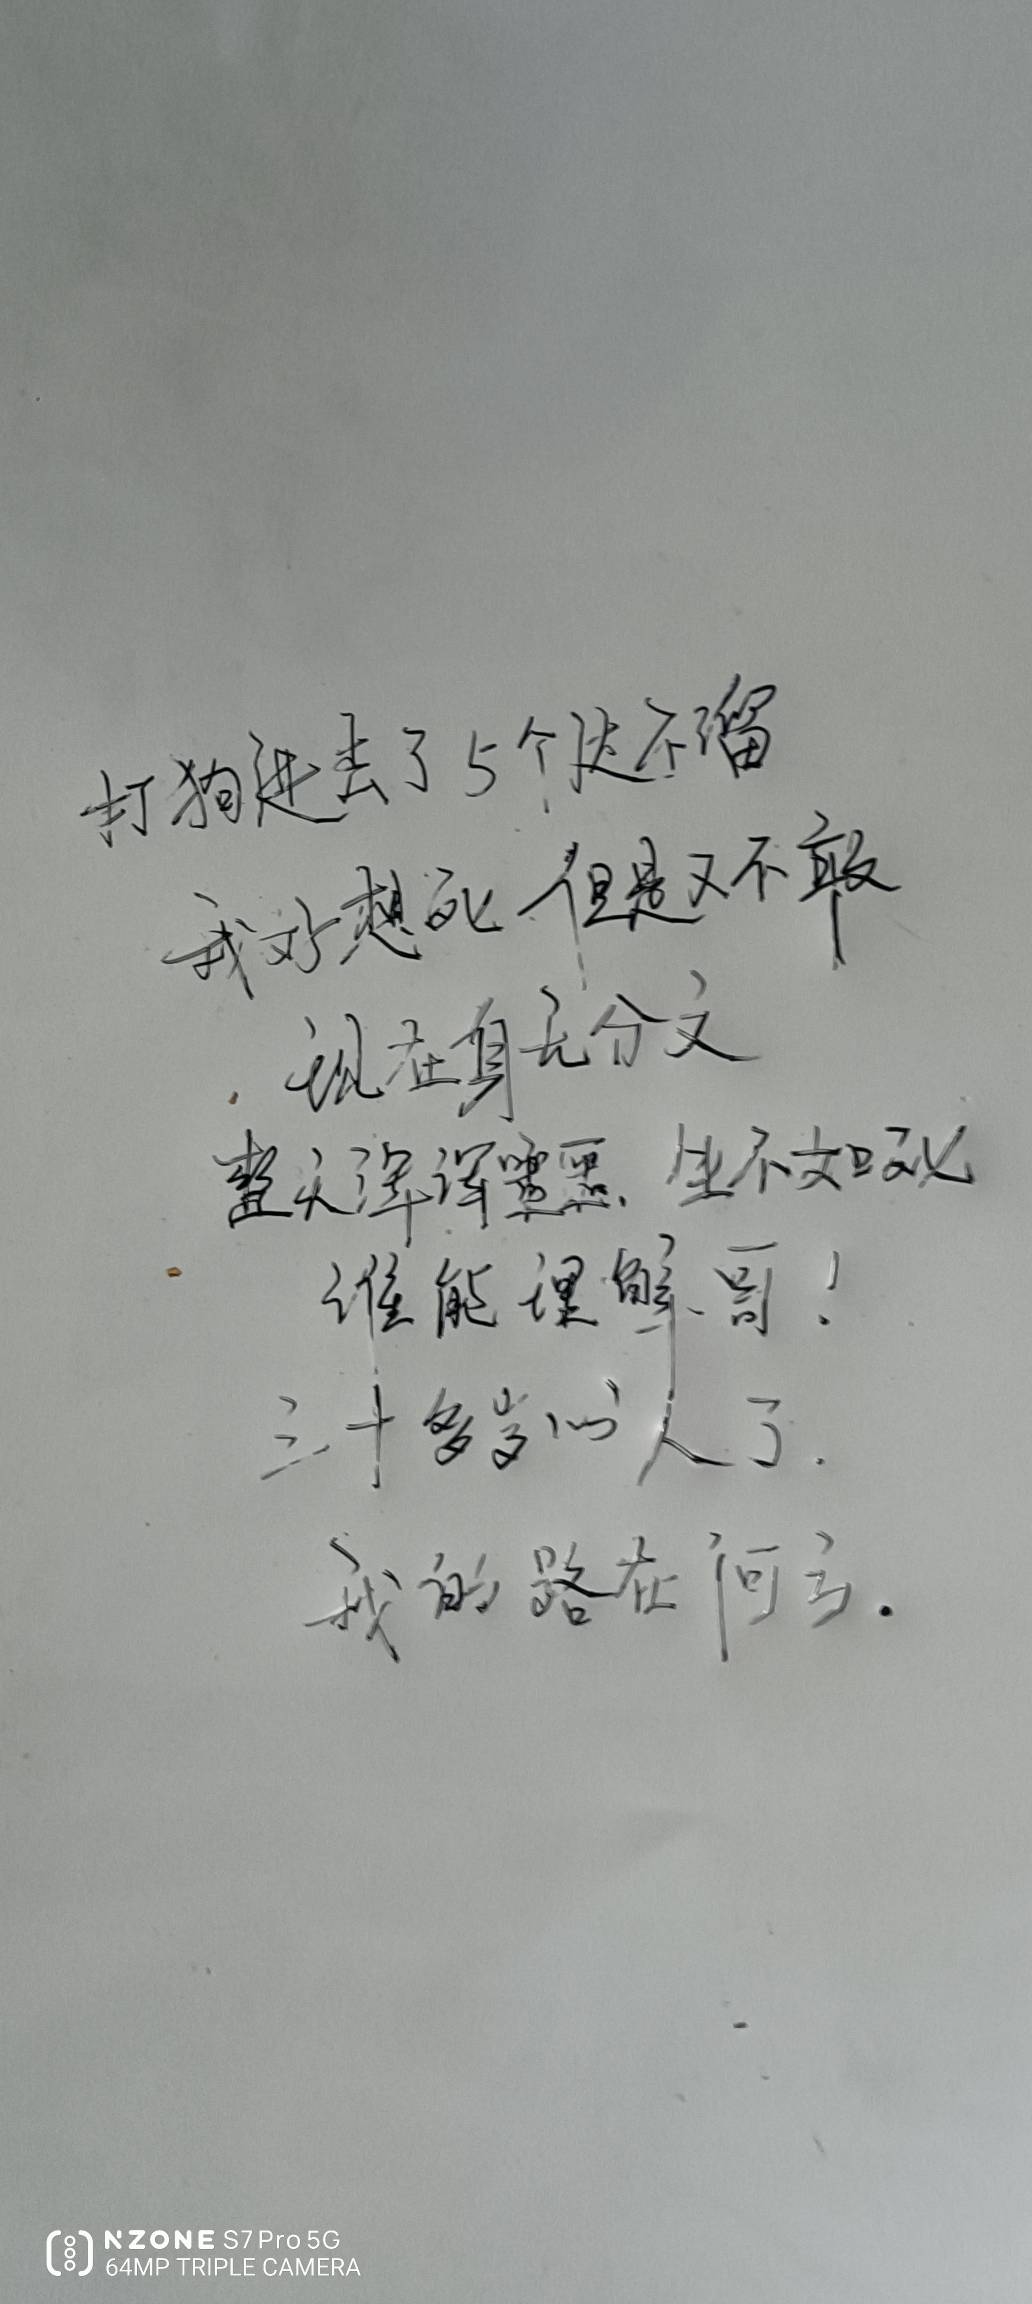 打狗进去了5个达不溜
我好想死但是又不敢
现在身无分文
整天浑浑噩噩、生不如死
谁能理解哥！
三十多岁的人了.
我的路在何方.
NZONE S7 Pro 5G
64MP TRIPLE CAMERA